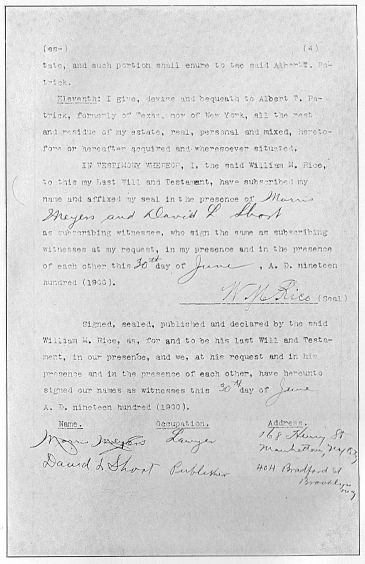 (es-) (4)
tate, and such portion shall enure to the said Albert T. Pa-
trick.
Eleventh: I give, devise and bequeath to Albert T. Pa-
trick, formerly of Texas, now of New York, all the rest
and residue of my estate, real, personal and mixed, hereto-
fore or hereafter acquired and wheresoever situated.
IN TESTIMONY WHEREOF, I, the said William M. Rice,
to this my Last Will and Testament, have subscribed my
name and affixed my seal in the presence of Morris
Meyers and David L Short
as subscribing witnesses, who sign the same as subscribing
witnesses at my request, in my presence and in the presence
of each other this 30th day of June , A. D. nineteen
hundred (1900).
W. M. Rice (Seal)
Signed, sealed, published and declared by the said
William M. Rice, as, for and to be his last Will and Testa-
ment, in our presence, and we, at his request and in his
presence and in the presence of each other, have hereunto
signed our names as witnesses this 30th day of June
A. D. nineteen hundred (1900).
Name. Occupation. Address.
Morris Meyers Lawyer 168 Henry St
Manhattan, N.Y. City
David L Short Publisher 404 Bradford St
Brooklyn
N.Y.